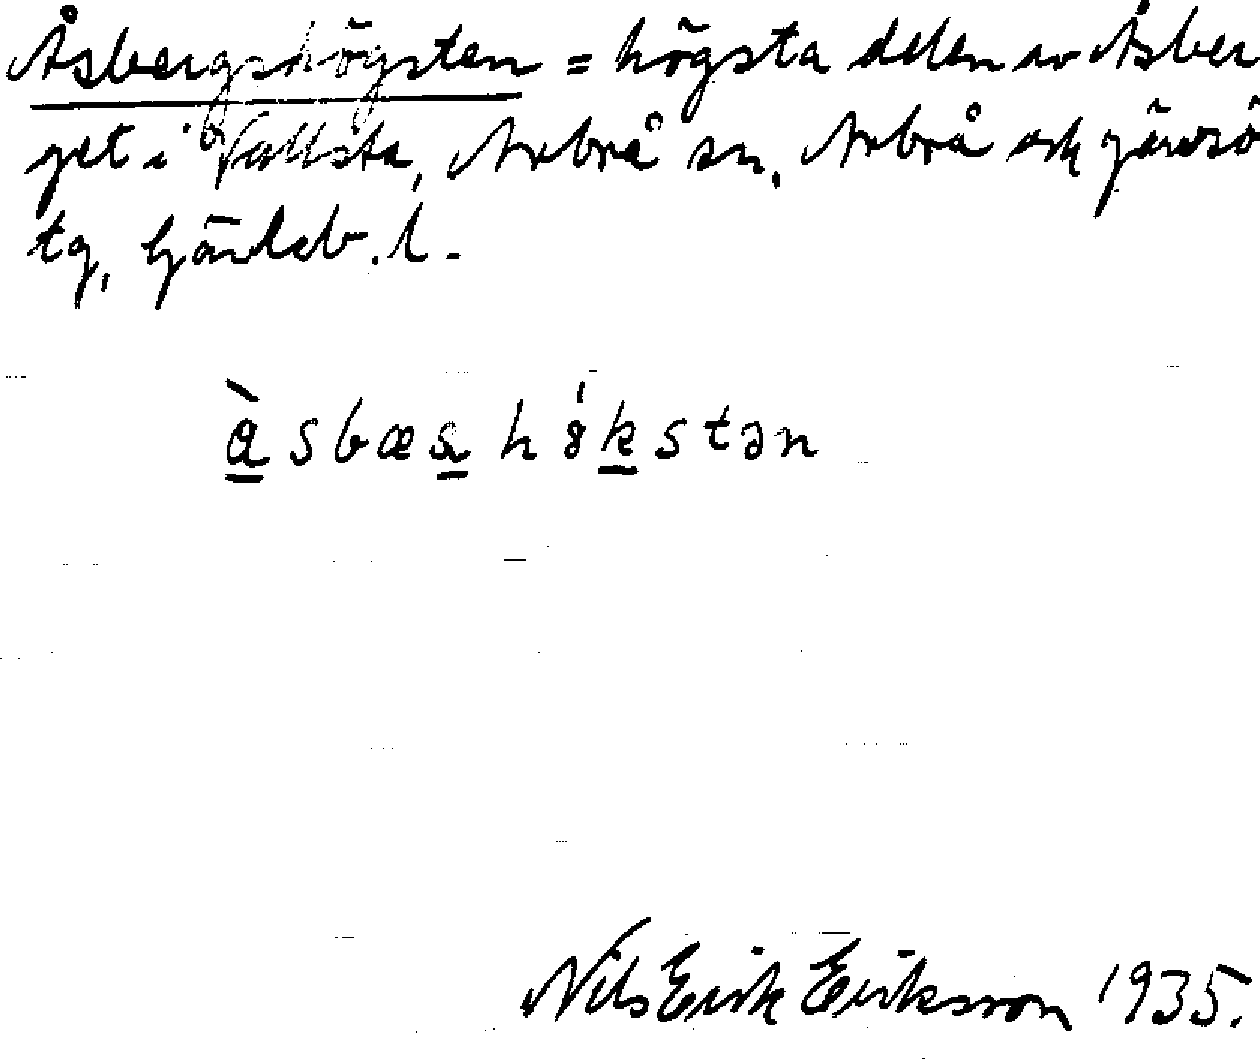 Åsbergshögsten = högsta delen av Åsber
get i Vallsta, Arbrå sn, Arbrå och Järvsö
tg, Gävleb. l.
a᷆sbæsa hö́kstən
Nils Erik Eriksson 1935.